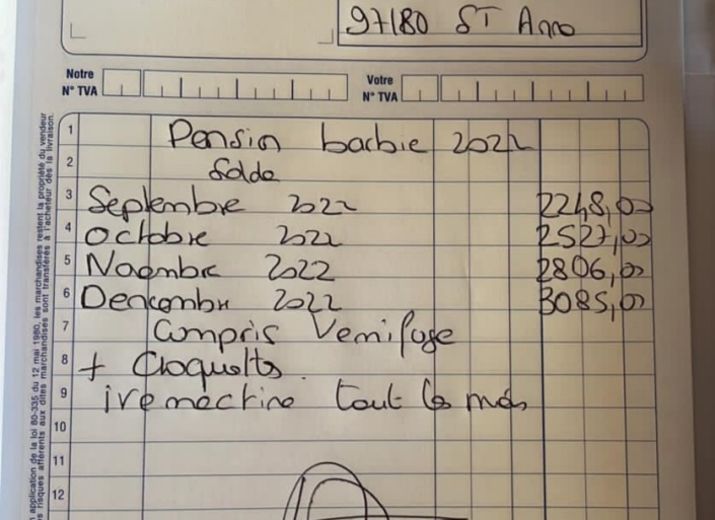 97180 ST Anne
Notre
N° TVA
Votre
N° TVA
1 Pension barbie 2022
2 Solde
3 Septembre 2022 2248,00
4 Octobre 2022 2527,00
5 Noembre 2022 2806,00
6 Dencombr 2022 3085,00
7 Compris Vemifuge
8 + Croquetts.
9 ivemectine tout le mois
10
11
12
application de la loi 80-335 du 12 mai 1980, les marchandises restent la propriété du vendeur
risques afférents aux dites marchandises sont transférés à l'acheteur dès la livraison.